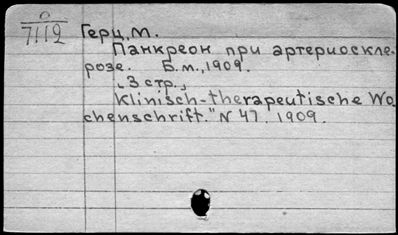 0
7112
Герц, М.
Панкреон при артериоскле-
розе. Б.м., 1909.
„3 стр.,
Klinisch-therapeutische Wo-
chenschrift." N 47. 1909.